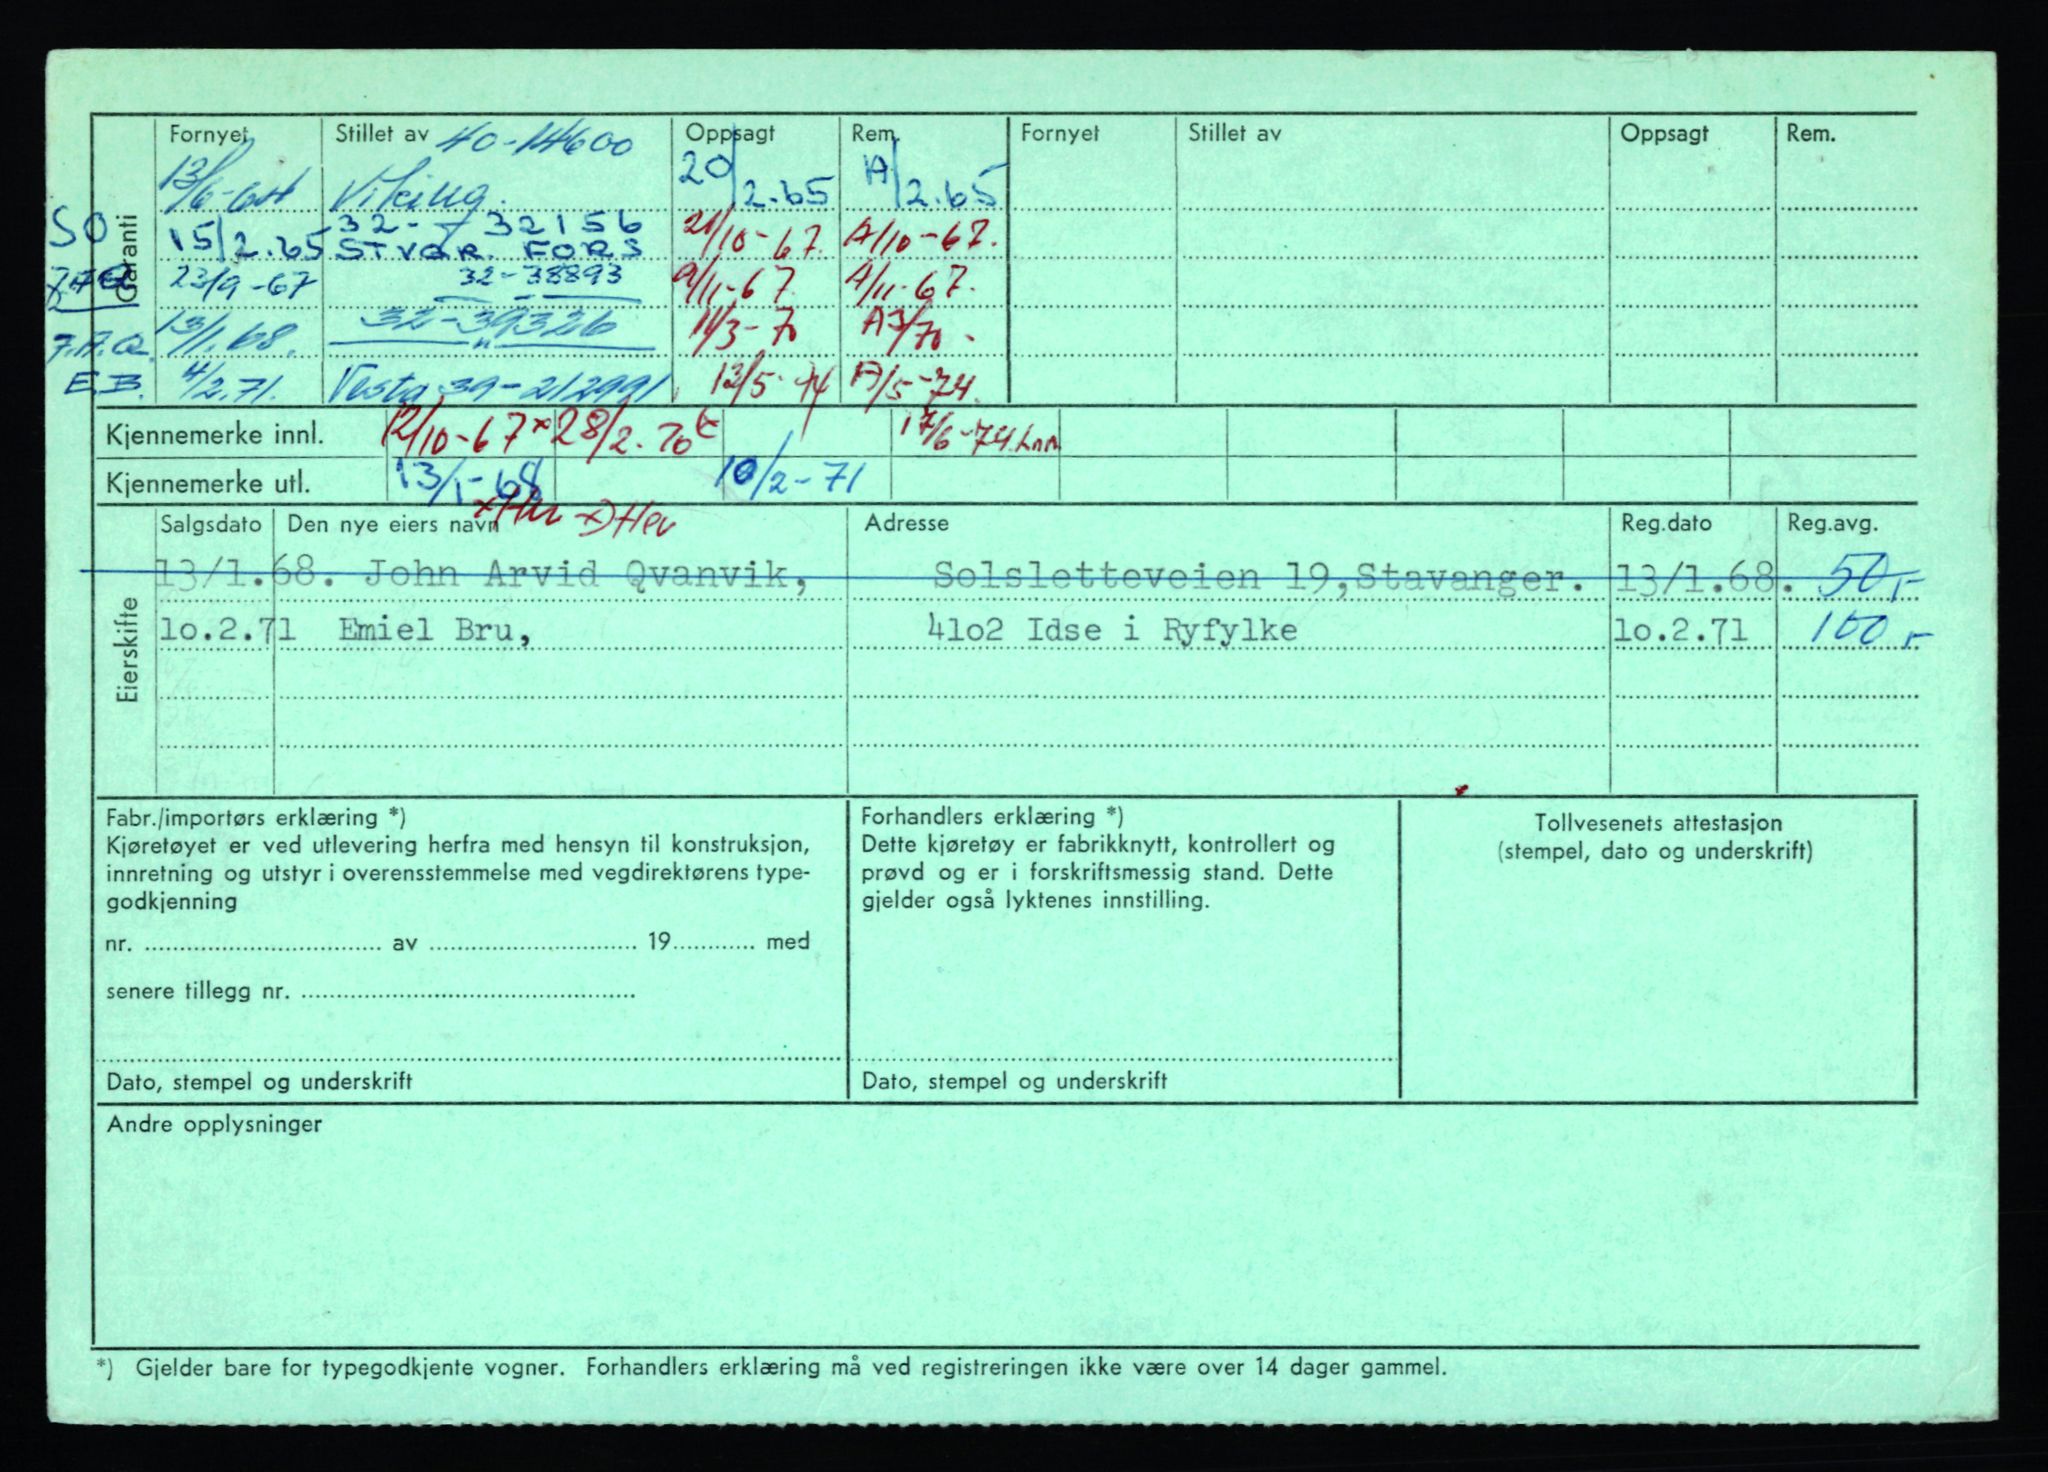 Garanti
Fornyet Stillet av 40-14600 Oppsagt Rem. Fornyet Stillet av Oppsagt Rem.
13/6- Viking. 20/2.65 A/2.65
SO 15/2.65 32-32156 STVGR. FORS 21/10-67. A/10-67.
23/9-67 32-38893 9/11-67 A/11-67.
F.A.Q. 13/1.68. 32-39326 11/3-70 A3/70.
E.B. 4/2.71. Vesta 39-212991. 12/5-74 A/5-74.
Kjennemerke innl. 12/10-67 x 28/2.70 17/6-74
Kjennemerke utl. 13/1-68 10/2-71
Eierskifte
Salgsdato Den nye eiers navn Adresse Reg.dato Reg.avg.
13/1.68. John Arvid Qvanvik, Solsletteveien 19,Stavanger. 13/1.68. 50,-
lo.2.71 Emiel Bru, 41o2 Idse i Ryfylke lo.2.71 100,-
Fabr./importørs erklæring *)
Kjøretøyet er ved utlevering herfra med hensyn til konstruksjon,
innretning og utstyr i overensstemmelse med vegdirektørens type-
godkjenning
nr. .......... av .......... 19.......... med
senere tillegg nr. ..........
Dato, stempel og underskrift
Forhandlers erklæring *)
Dette kjøretøy er fabrikknytt, kontrollert og
prøvd og er i forskriftsmessig stand. Dette
gjelder også lyktenes innstilling.
Dato, stempel og underskrift
Tollvesenets attestasjon
(stempel, dato og underskrift)
Andre opplysninger
*) Gjelder bare for typegodkjente vogner. Forhandlers erklæring må ved registreringen ikke være over 14 dager gammel.